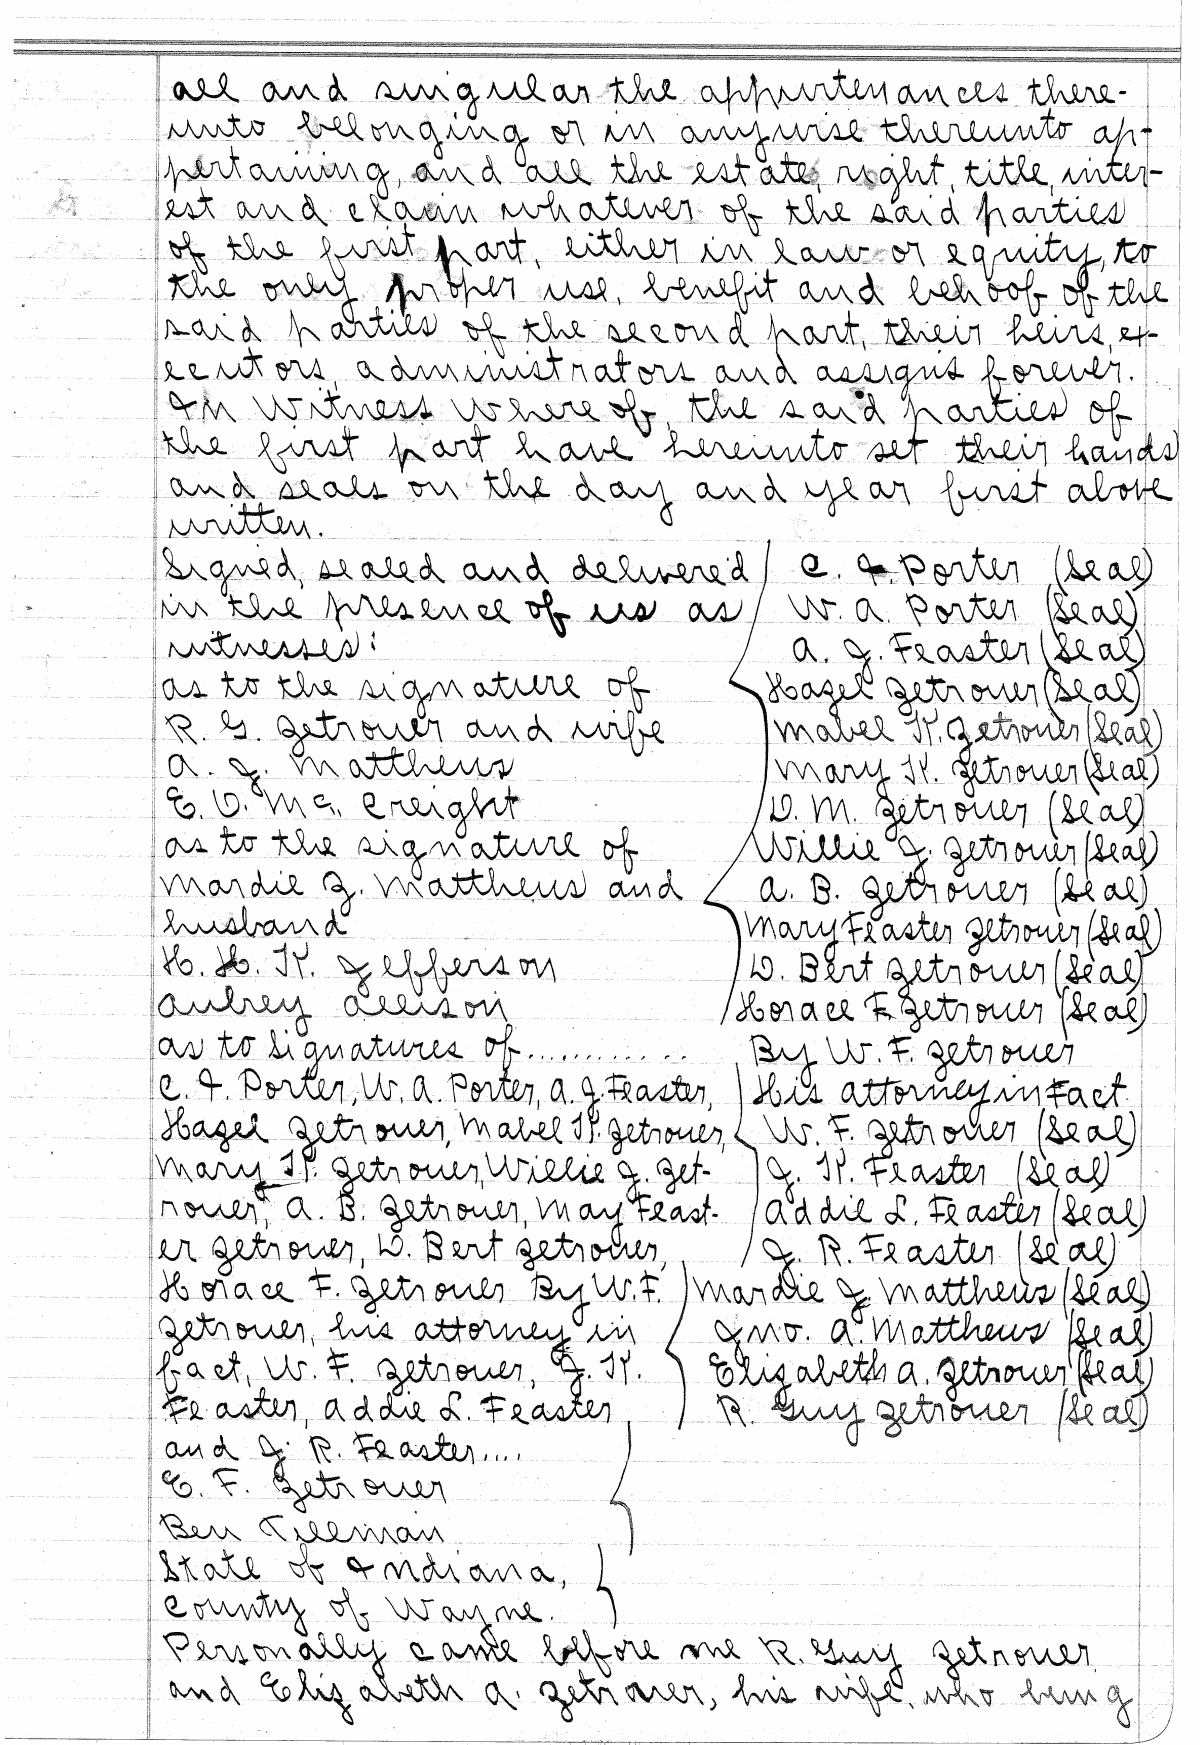 all and singular the appurtenances there-
unto belonging or in anywise thereunto ap-
pertaining, and all the estate, right, title, inter-
est and claim whatever of the said parties
of the first part, either in law or equity, to
the only proper use, benefit and behoof of the
said parties of the second part, their heirs, ex-
ecutors, administrators and assigns forever.
In Witness Whereof, the said parties of
the first part have hereunto set their hands
and seals on the day and year first above
written.
Signed, sealed and delivered
in the presence of us as
witnesses:
as to the signature of
R. G. Zetrouer and wife
A. J. Matthews
E. D. Mc. Creight
as to the signature of
Mardie Z. Matthews and
husband
H. H. K. Jefferson
Aubrey Allison
as to Signatures of............
C. I. Porter, W. A. Porter, A. J. Feaster,
Hazel Zetrouer, Mabel K. Zetrouer,
Mary K. Zetrouer, Willie J. Zet-
rouer, A. B. Zetrouer, May Feast-
er Zetrouer, D. Bert Zetrouer,
Horace F. Zetrouer By W. F.
Zetrouer, his attorney in
fact, W. F. Zetrouer, J. K.
Feaster, Addie L. Feaster
and J. R. Feaster....
E. F. Zetrouer
Ben Tillman
C. I. Porter (Seal)
W. A. Porter (Seal)
A. J. Feaster (Seal)
Hazel Zetrouer (Seal)
Mabel K. Zetrouer (Seal)
Mary K. Zetrouer (Seal)
D. M. Zetrouer (Seal)
Willie J. Zetrouer (Seal)
A. B. Zetrouer (Seal)
Mary Feaster Zetrouer (Seal)
D. Bert Zetrouer (Seal)
Horace F. Zetrouer (Seal)
By W. F. Zetrouer
His attorney in Fact
W. F. Zetrouer (Seal)
J. K. Feaster (Seal)
Addie L. Feaster (Seal)
J. R. Feaster (Seal)
Mardie J. Matthews (Seal)
Jno. A. Matthews (Seal)
Elizabeth A. Zetrouer (Seal)
R. Guy Zetrouer (Seal)
State of Indiana,
County of Wayne.
Personally came before me R. Guy Zetrouer
and Elizabeth A. Zetrouer, his wife, who being